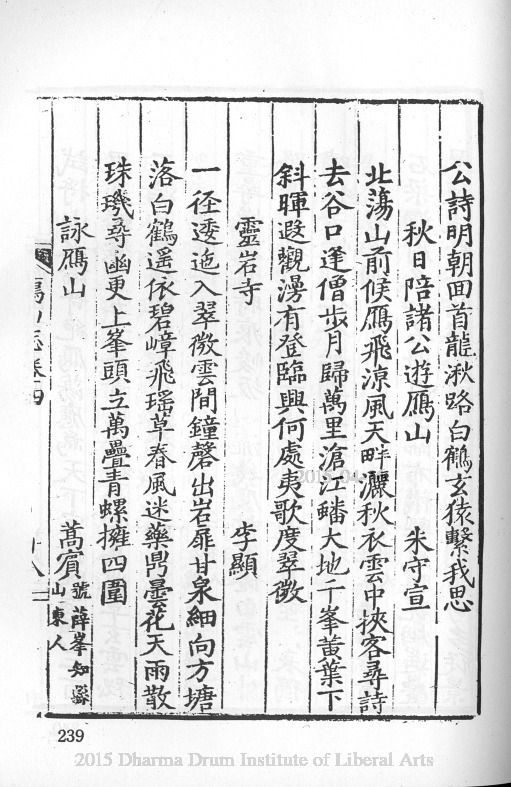 公詩明朝回首龍湫路白鶴玄猿繫我思
秋日陪諸公遊鴈山 朱守宣
北蕩山前候鴈飛涼風天畔灑秋衣雲中挾客尋詩
去谷口逢僧步月歸萬里滄江蟠大地千峯黃葉下
斜暉遐觀漫有登臨興何處夷歌度翠微
靈岩寺 李顯
一徑逶迤入翠微雲間鐘磬出岩扉甘泉細向方塘
落白鶴遥依碧嶂飛瑶草春風迷藥鼎曇花天雨散
珠璣尋幽更上峯頭立萬疊青螺擁四圍
詠鴈山 蒿賓 號薛峯知縣
山東人
鴈山志卷四
239
2015 Dharma Drum Institute of Liberal Arts